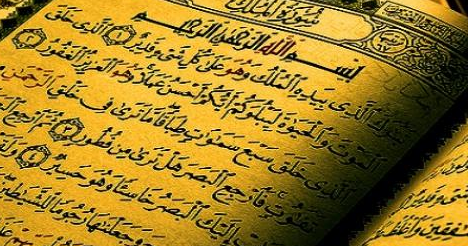 سُورَةُ الْمُلْكِ
بِسْمِ اللَّهِ الرَّحْمَٰنِ الرَّحِيمِ
تَبَٰرَكَ ٱلَّذِى بِيَدِهِ ٱلْمُلْكُ وَهُوَ عَلَىٰ كُلِّ شَىْءٍ قَدِيرٌ ١ ٱلَّذِى خَلَقَ
ٱلْمَوْتَ وَٱلْحَيَوٰةَ لِيَبْلُوَكُمْ أَيُّكُمْ أَحْسَنُ عَمَلًا وَهُوَ ٱلْعَزِيزُ ٱلْغَفُورُ ٢
ٱلَّذِى خَلَقَ سَبْعَ سَمَٰوَٰتٍ طِبَاقًا مَّا تَرَىٰ فِى خَلْقِ ٱلرَّحْمَٰنِ
تَفَٰوُتٍ فَٱرْجِعِ ٱلْبَصَرَ هَلْ تَرَىٰ مِن فُطُورٍ ٣ ثُمَّ ٱرْجِعِ
إِلَيْكَ ٱلْبَصَرُ خَاسِئًا وَهُوَ حَسِيرٌ ٤
وَجَعَلْنَٰهَا رُجُومًا لِّلشَّيَٰطِينِ